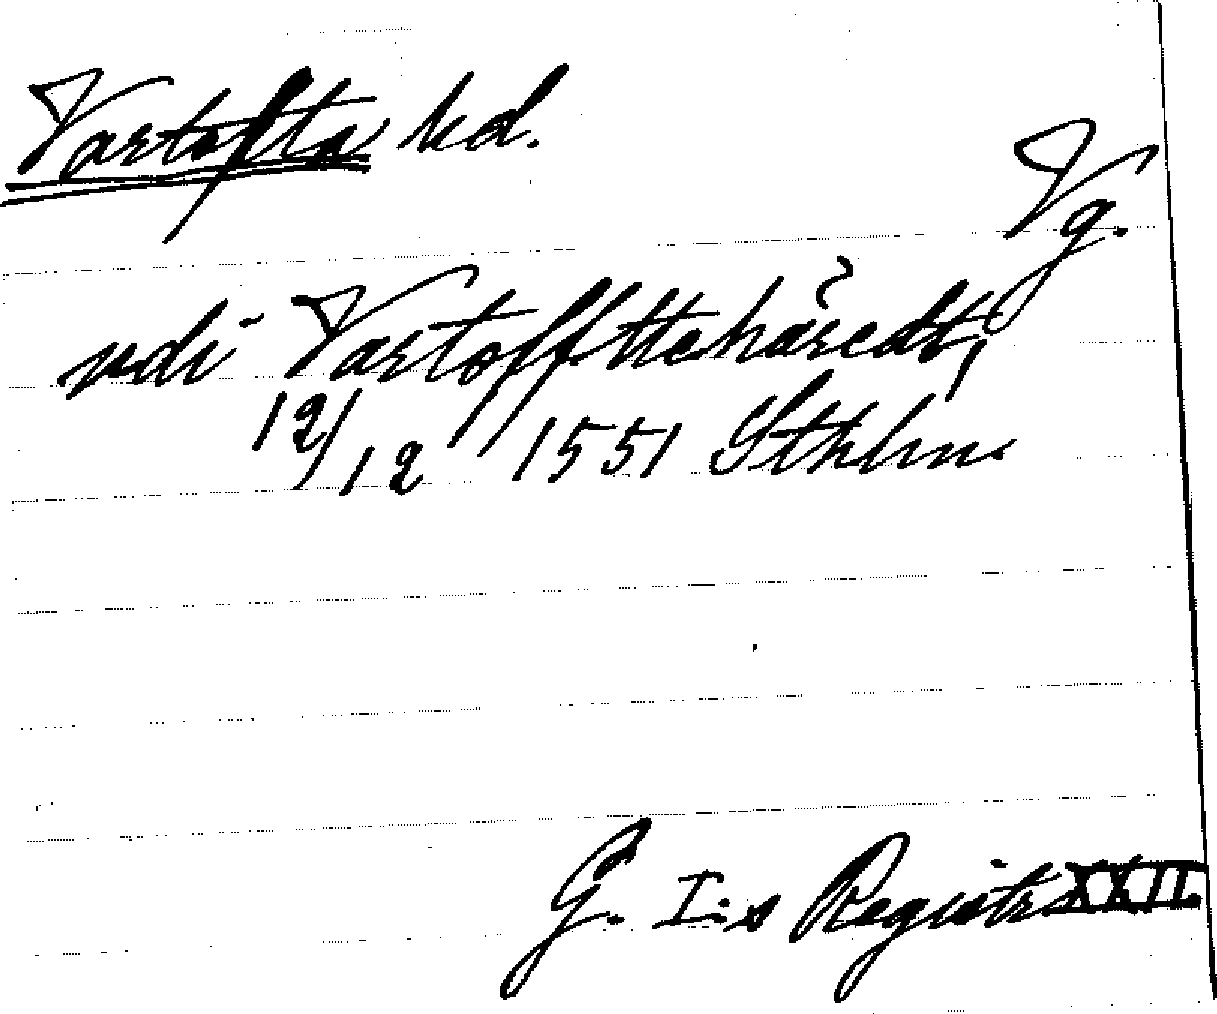 Vartofta hd.
Vg.
vdi Vartoffttehäredt,
12/12 1551 Sthlm.
G. I:s Registr. XXII.